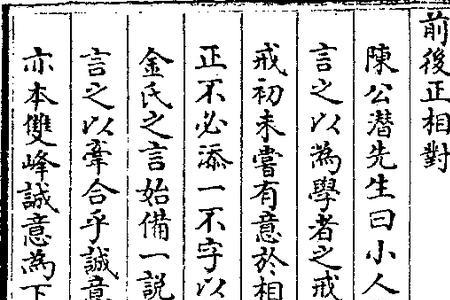 前後正相對
陳公潛先生曰小人
言之以為學者之戒
戒初未嘗有意於相
正不必添一不字以
金氏之言始備一説
言之以牽合乎誠意
亦本雙峰誠意為下